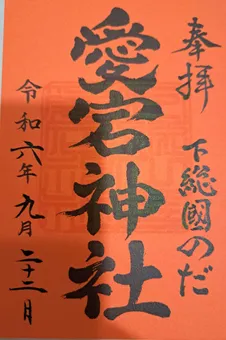 奉拝 下総國のだ
愛宕神社
令和六年九月二十二日